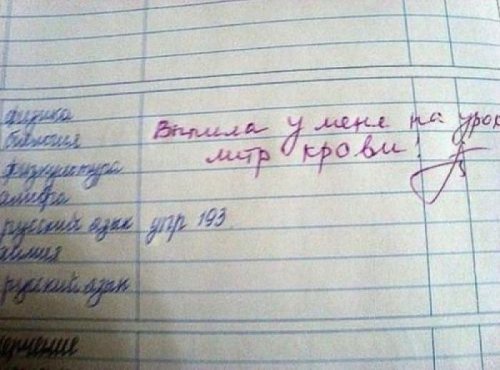 физика
биология
Выпила у меня на урок
литр крови!
физкультура
алгебра
русский язык упр 193.
химия
русский язык
ерчение